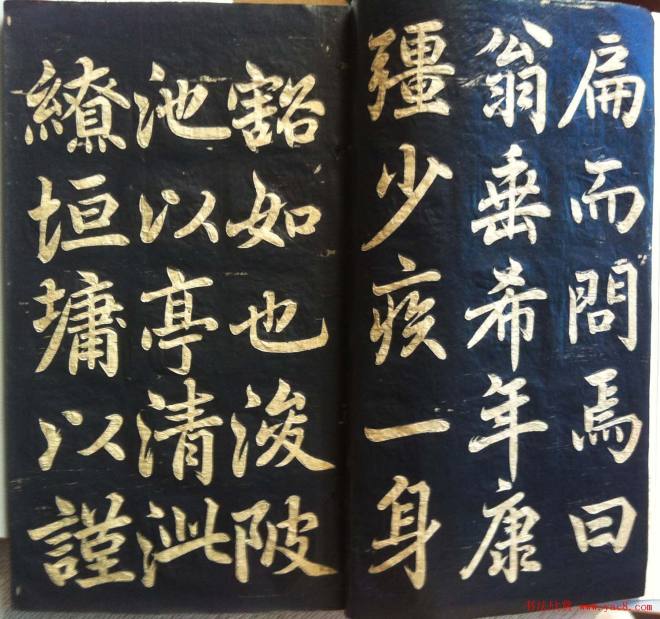 扁而問焉曰
翁垂希年康
彊少疾一身
豁如也浚陂
池以亭清泚
繚垣墉以謹
书法江湖 www.yac8.com